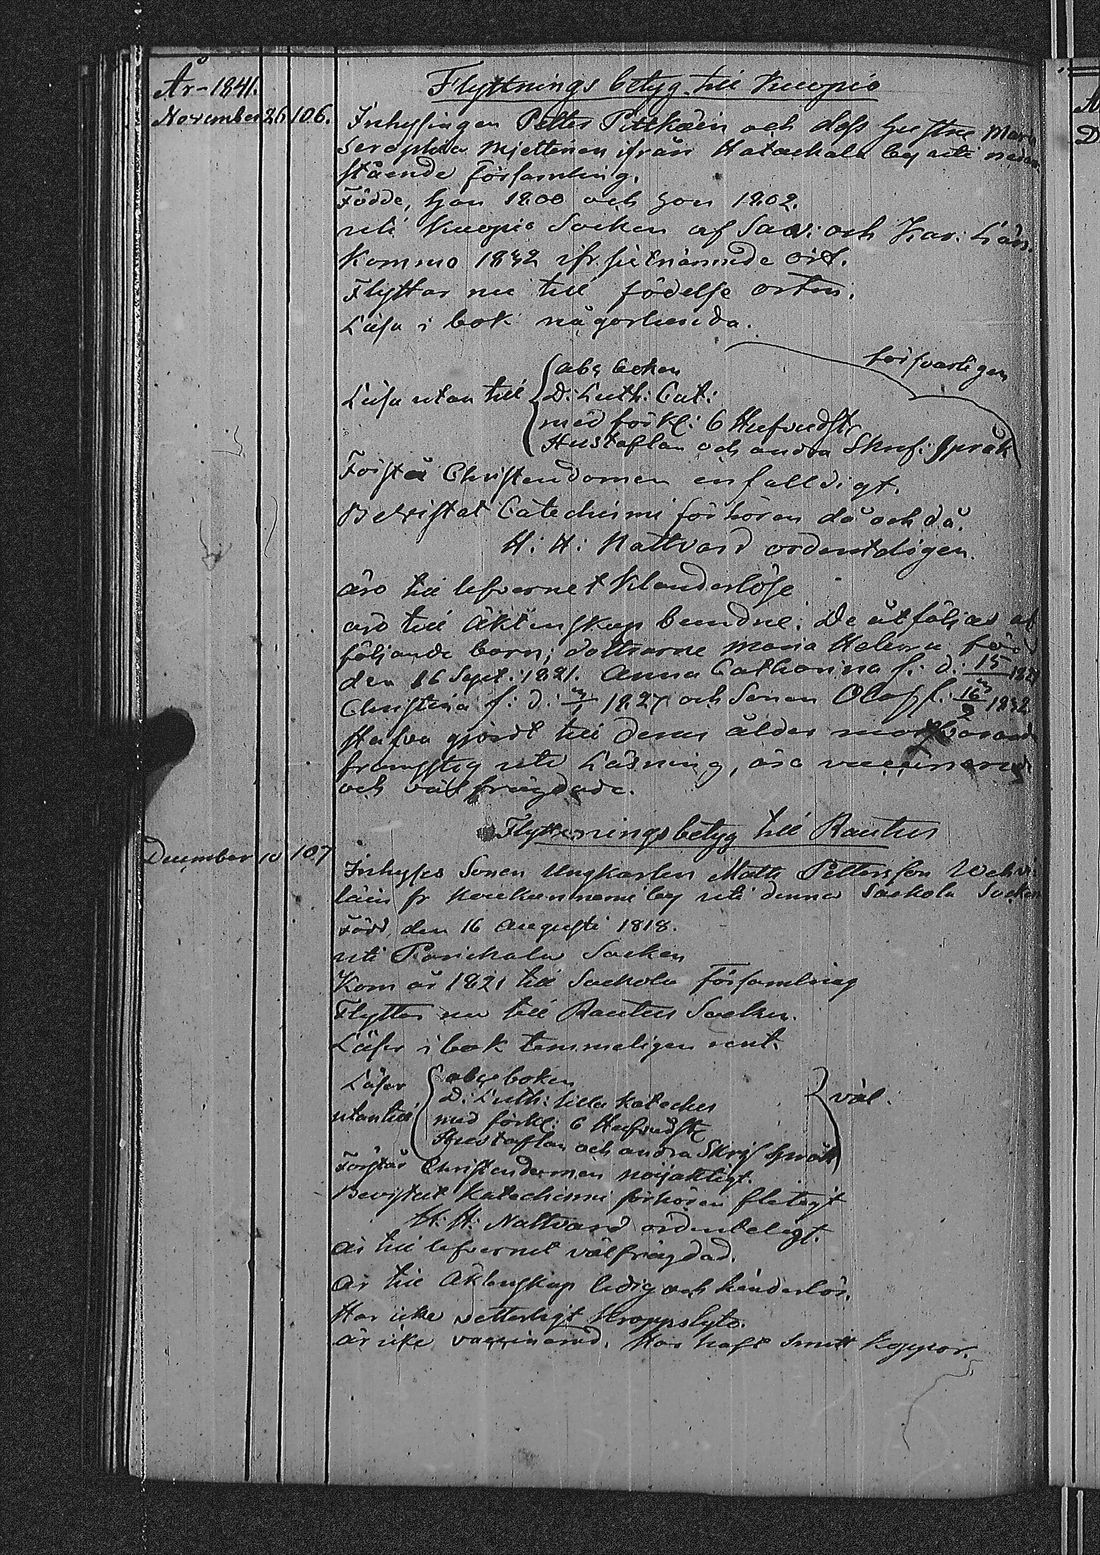 År 1841.
Flyttnings betyg till Kuopio
November 26 106.
Inhysingen Petter Pitkäin och dess hustru Maria
Seraphia Miettinen ifrån Hataekala by uti nedan
stående församling.
Födde, han 1800 och hon 1802.
uti Kuopio Socken af Sav: och Kar: Län.
Kommo 1832 ifr sistnämnde ort.
Flyttar nu till födelse orten.
Läsa i bok någorlunda.
försvarligen
Läsa utan till
abc boken
D: Luth: Cat:
med förkl: 6 Hufvudst
Hustaflan och andra Skrif: språk
Förstå Christendomen enfalldigt.
Bevistat Catechismi förhören då och då.
H: H: Nattvard ordentligen.
äro till lefvernet Klanderlöse
äro till Äktenskap bundne. De åtföljas af
följande barn; döttrarne Maria Helena född
den 16 Sept. 1821. Anna Catharina f: d: 15
Christina f: d: 1827 och Sonen Olof f: 16/2 1832
Hafva gjordt till deras ålder
framsteg uti Läsning, äro vaccinerade
och väl frägdade.
Flyttningsbetyg till Rautus
December 10 107
Inhyses Sonen Ungkarlen Matts Pettersson
fr by uti denna Säckola Socken
Född den 16 Augusti 1818.
uti Parikala Socken
Kom år 1821 till Säckola Församling
Flyttar nu till Rautus Socken.
Läser i bok temmeligen rent.
Läser
utantill
abc boken
D: Luth: lilla kateches
med förkl: 6 Hufvudst
Hustaflan och andra Skrif språk
väl.
Förstår Christendommen nöjaktigt.
Bevistat Katechismi förhören flitigt
H: H: Nattvard ordenteligt.
är till lefvernet välfrägdad.
är till Äktenskap ledig och hinderlös.
Har icke veterligt Kroppslyte.
är icke vaccinerad. Har haft Smitt Koppor.